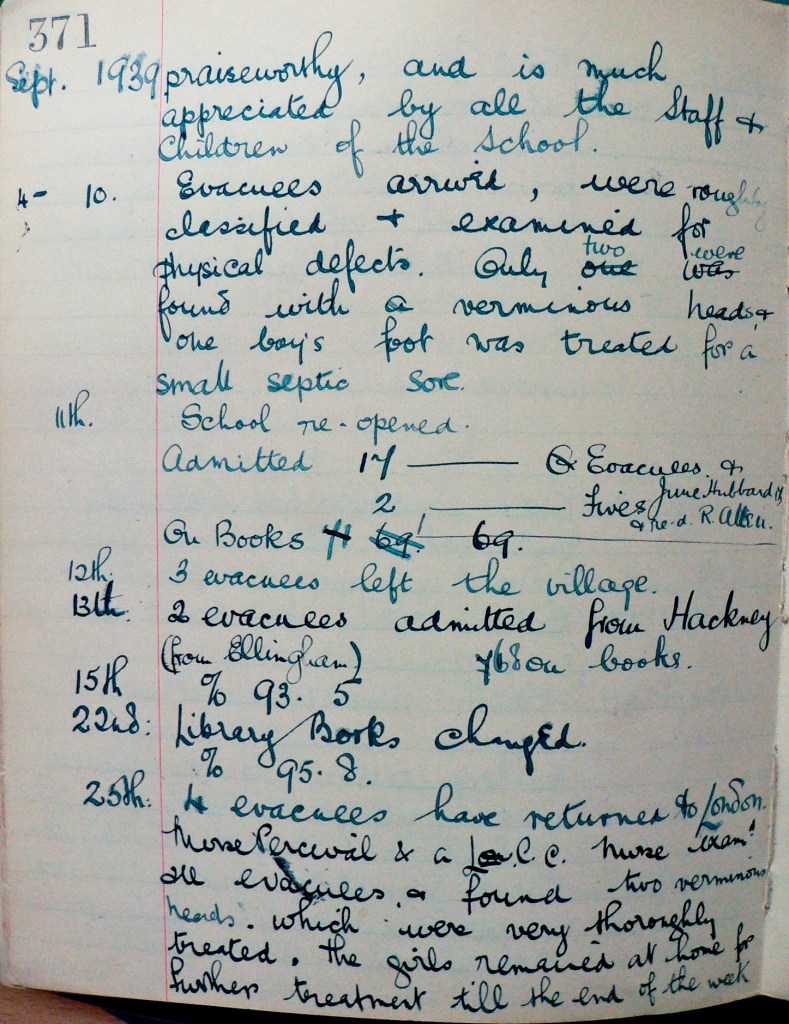 371
Sept. 1939 praiseworthy, and is much
appreciated by all the Staff &
Children of the School.
4 - 10. Evacuees arrived, were roughly
classified & examined for
physical defects. Only one two was were
found with a verminous heads, &
one boy's foot was treated for a
small septic sore.
11th. School re-opened.
Admitted 17 —— Evacuees &
2 —— Fives June Hubbard
& re-d. R. Allen.
On Books 69! 69.
12th. 3 evacuees left the village.
13th. 2 evacuees admitted from Hackney
(from Ellingham) 68 on books.
15th % 93.5
22nd: Library Books changed.
% 95.8.
25th: 4 evacuees have returned to London.
Nurse Percival & a L.C.C. nurse exam'
all evacuees, & found two verminous
heads. which were very thoroughly
treated. The girls remained at home for
further treatment till the end of the week